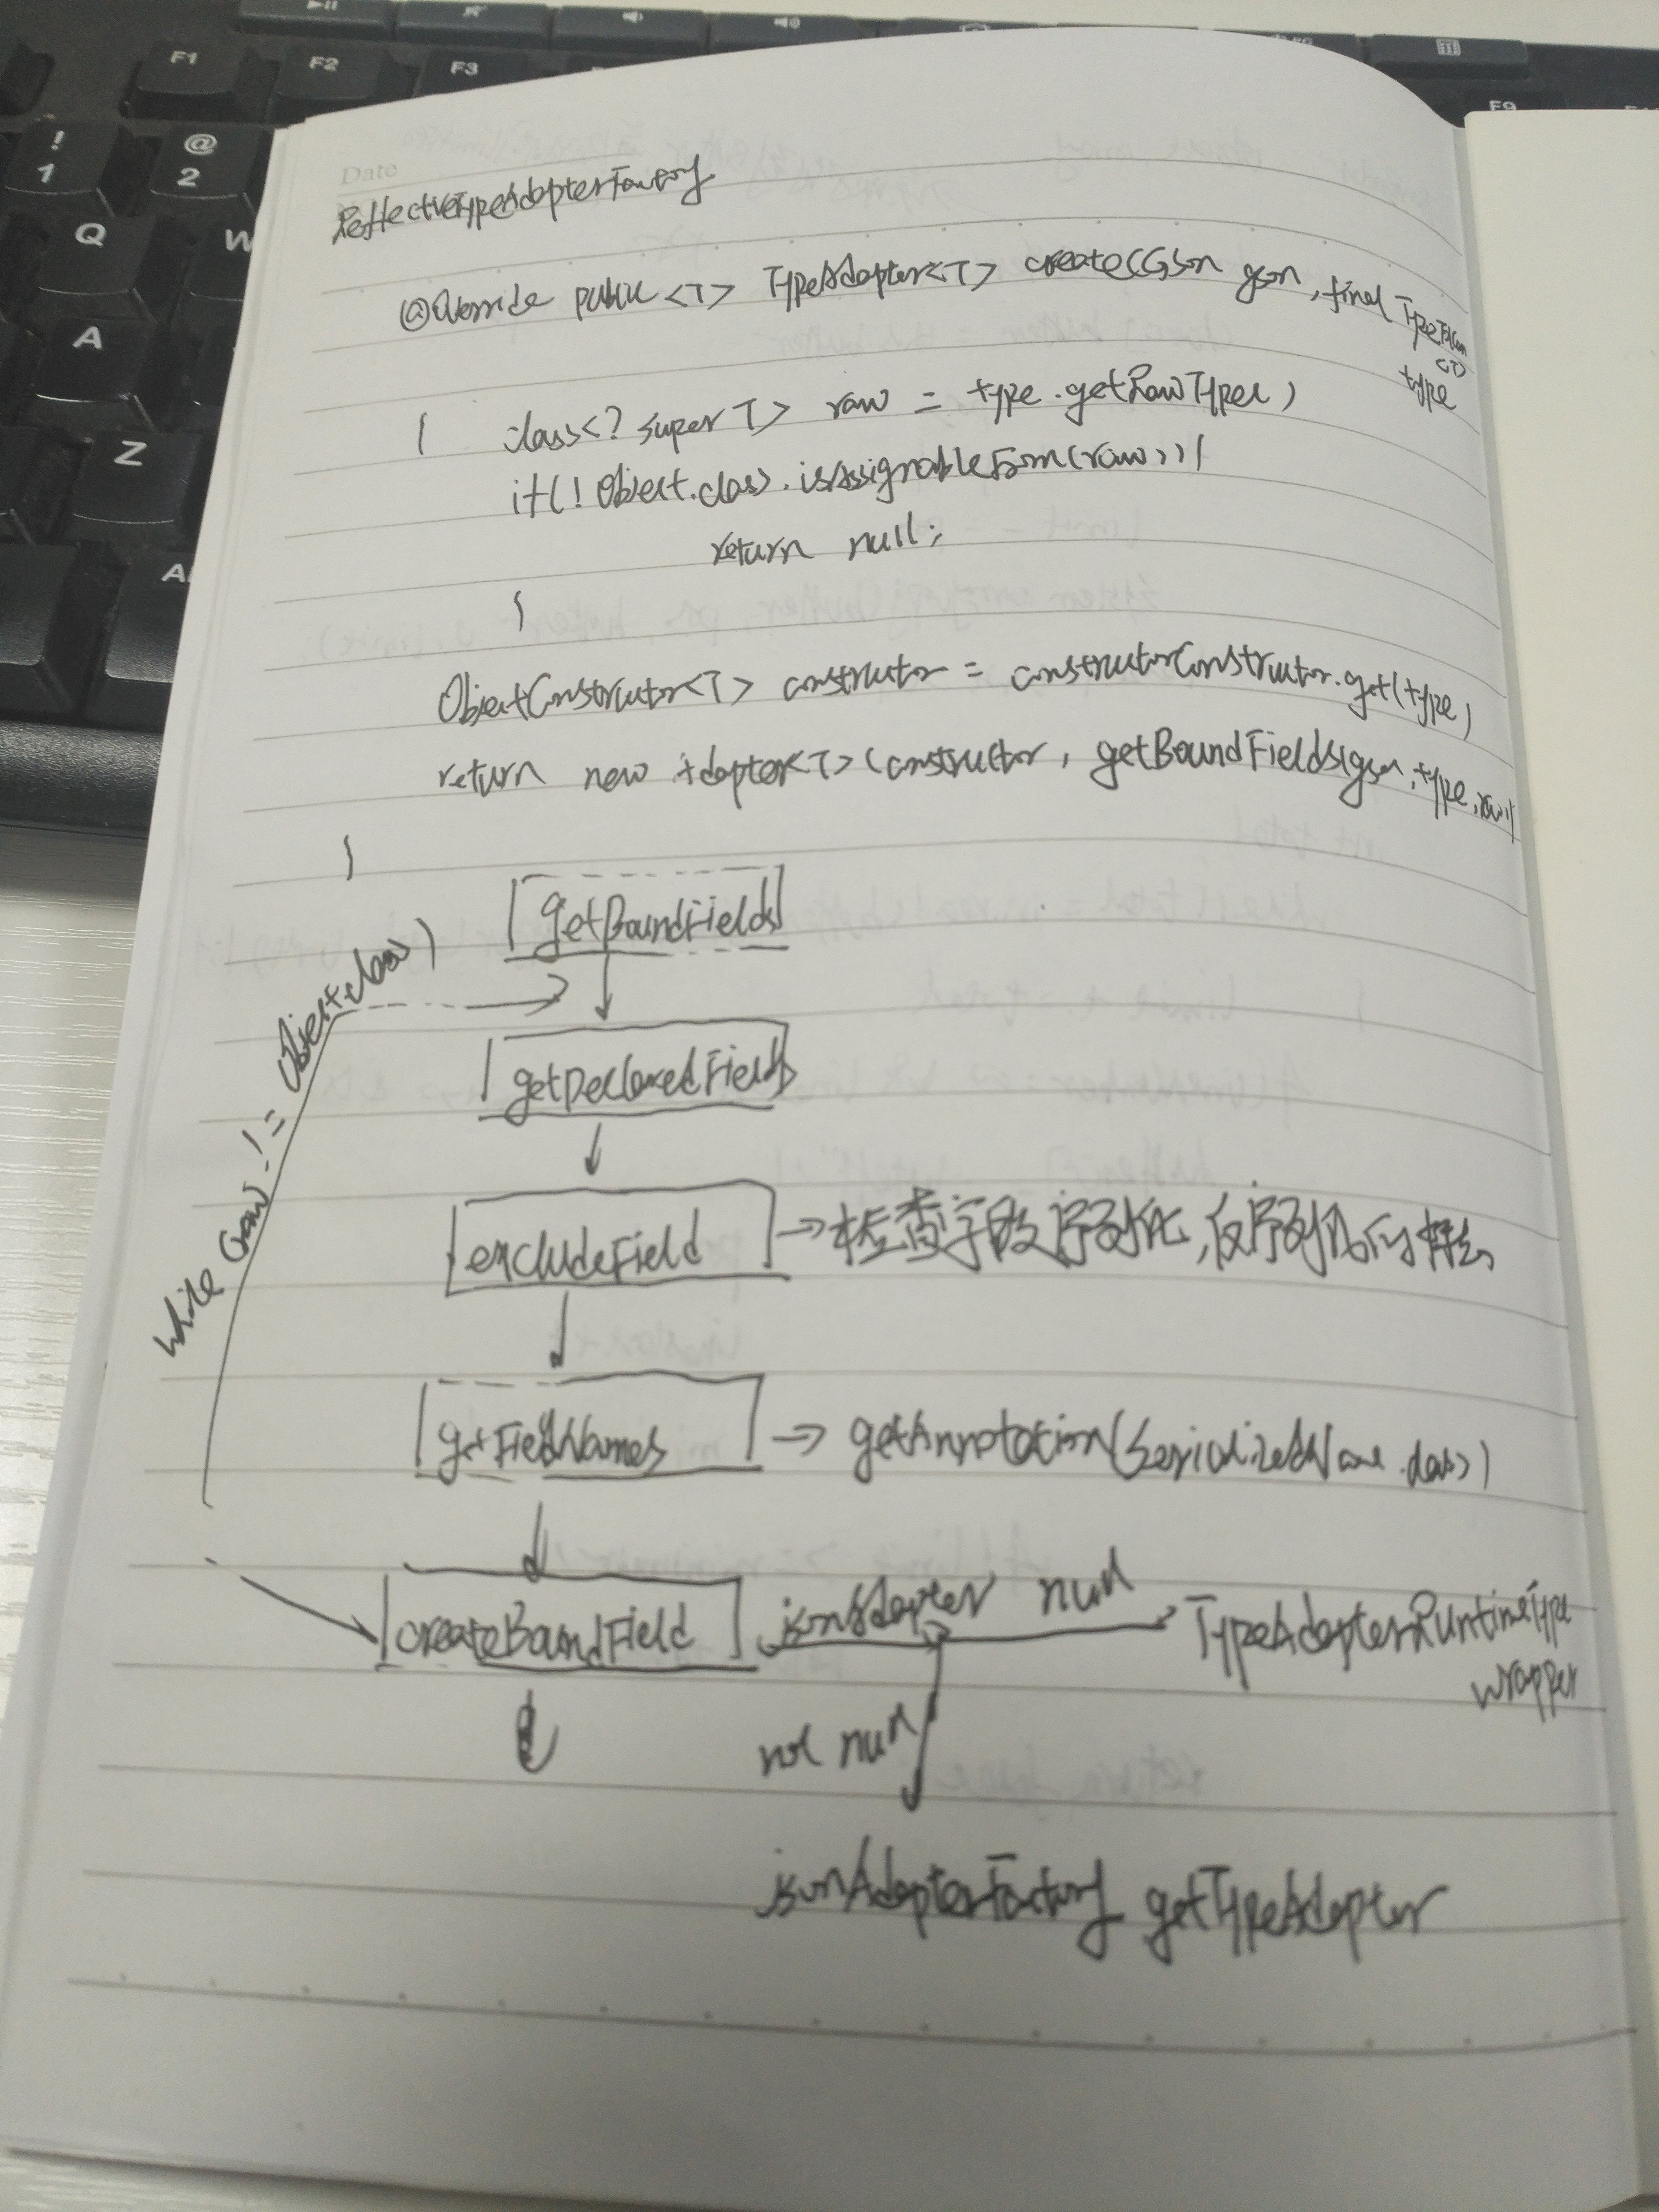 F1
F2
F3
F9
!
1
@
2
Q
W
A
Z
Date
ReflectiveTypeAdapterFactory
@Override public <T> TypeAdapter<T> create(Gson gson, final TypeToken
<T>
type
{ class<? super T> raw = type.getRawType()
if(! Object.class.isAssignableFrom(raw)){
return null;
}
ObjectConstructor<T> constructor = constructorConstructor.get(type)
return new Adapter<T>(constructor, getBoundFields(gson, type, raw))
}
getBoundFields
while (raw != Object.class)
getDeclaredFields
excludeField → 检查字段序列化,反序列化的
getFieldNames → getAnnotation(SerializedName.class)
createBoundField jsonAdapter null TypeAdapterRuntimeType
wrapper
not null
jsonAdapterFactory getTypeAdapter